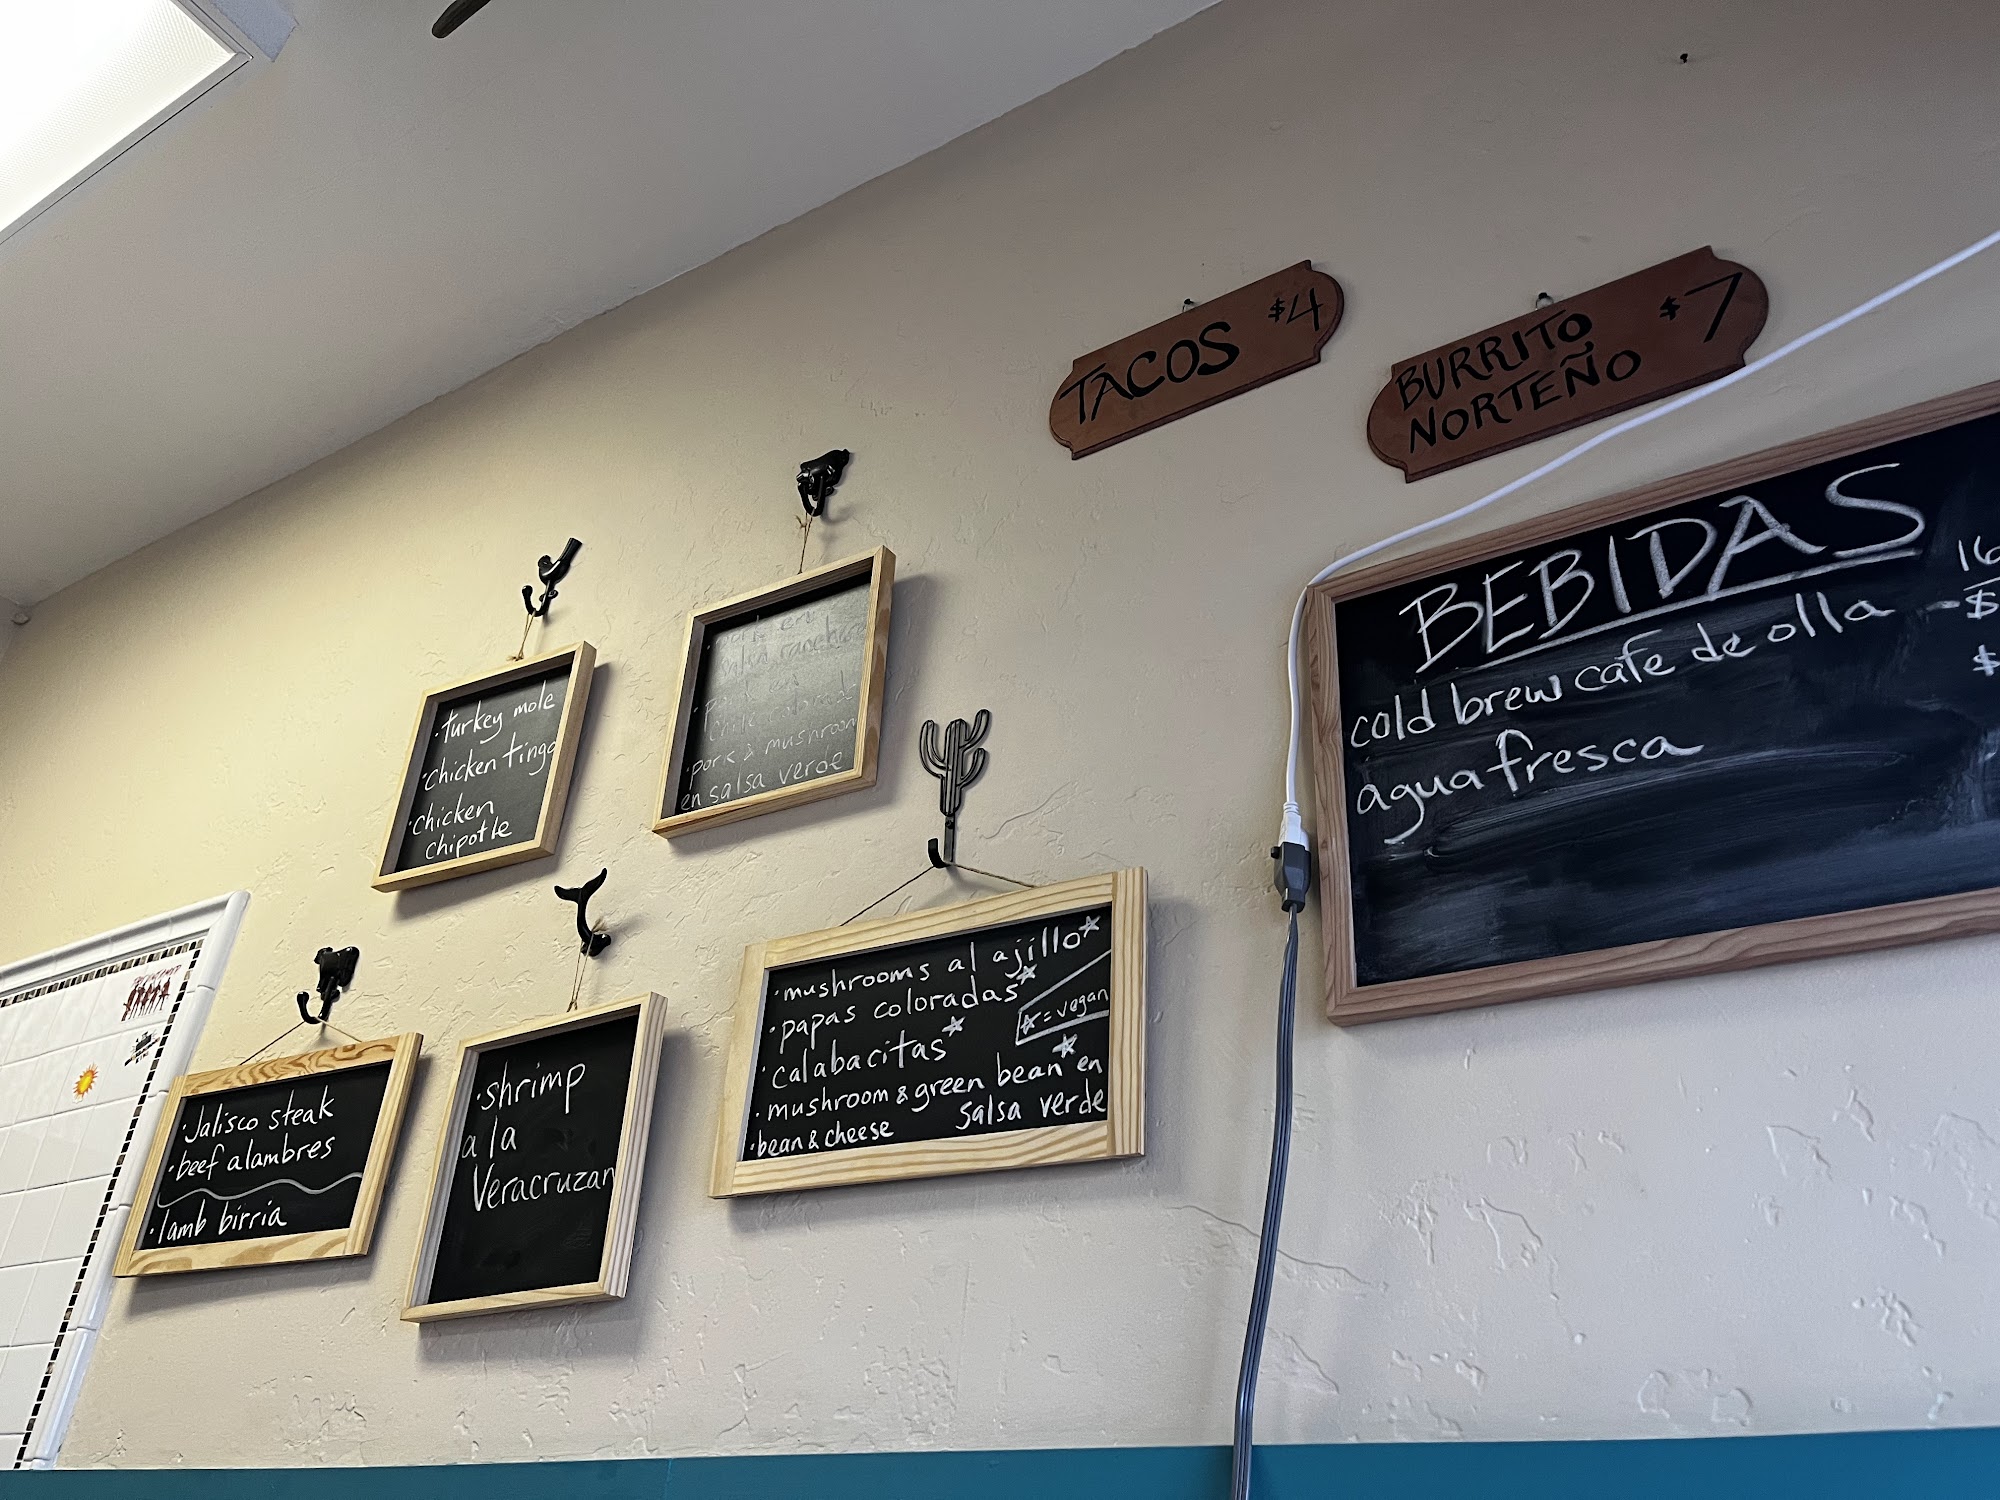 TACOS $4
BURRITO $7
NORTEÑO
BEBIDAS
16
cold brew cafe de olla - $
agua fresca $
· turkey mole
· chicken tinga
· chicken
chipotle
salsa ranchera
· pork en
chile colorado
· pork & mushroom
en salsa verde
· Jalisco steak
· beef alambres
· lamb birria
· shrimp
a la
Veracruzan
· mushrooms al ajillo☆
· papas coloradas☆
☆ = vegan
· calabacitas☆
· mushroom & green bean☆ en
salsa verde
· bean & cheese